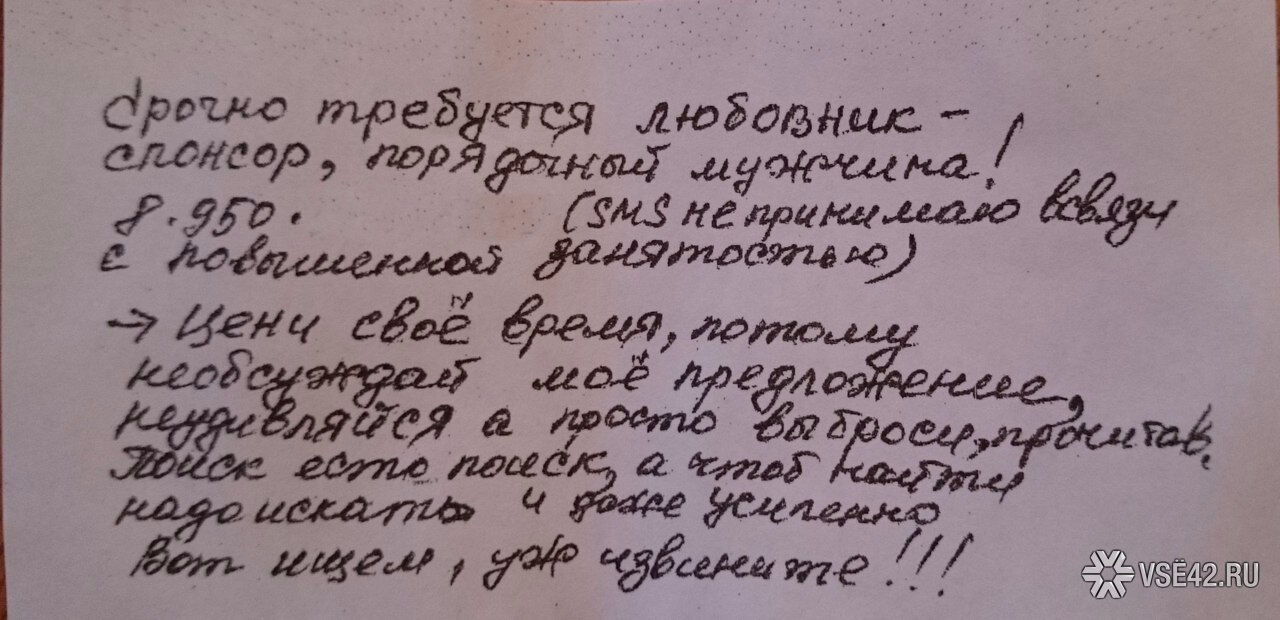 Срочно требуется любовник-
спонсор, порядочный мужчина!
8.950. (SMS не принимаю всвязи
с повышенной занятостью)
→ Цени своё время, потому
необсуждай моё предложение,
неудивляйся а просто выброси, прочитав.
Поиск есть поиск, а чтоб найти
надо искать и даже усиленно
Вот ищем, уж извините!!!
VSЁ42.RU